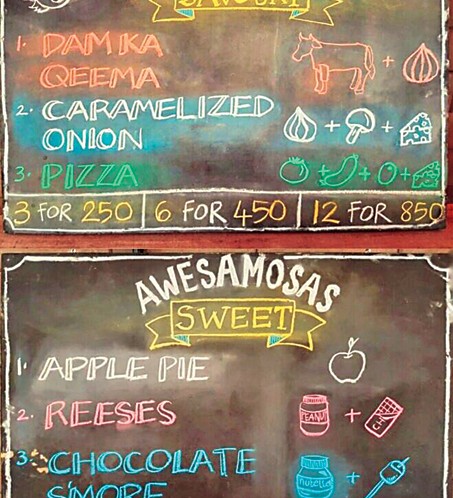 SAVOURY
1. DAM KA
QEEMA
+
2. CARAMELIZED
ONION
+ +
3. PIZZA
+ + +
3 FOR 250 | 6 FOR 450 | 12 FOR 850
AWESAMOSAS
SWEET
1. APPLE PIE
2. REESES
PEANUT + CH
3. CHOCOLATE
S'MORE
nutella +